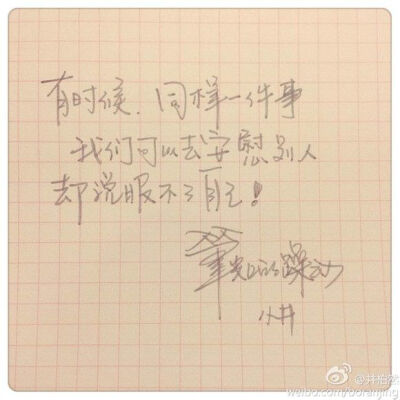 有时候,同样一件事
我们可以去安慰别人
却说服不了自己!
笔尖的躁动
小井
@井柏然
weibo.com/boranjing